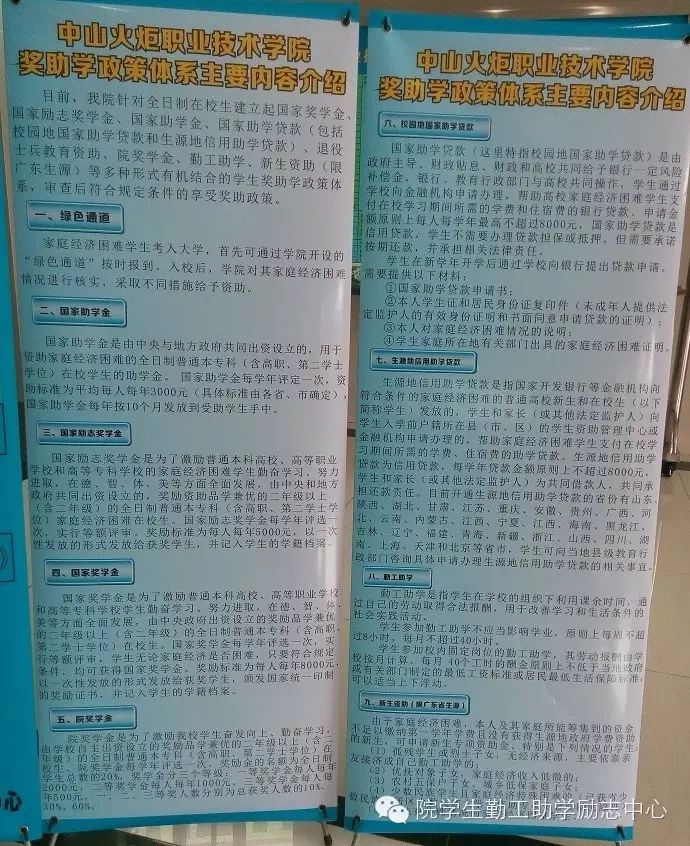 中山火炬职业技术学院
奖助学政策体系主要内容介绍
目前，我院针对全日制在校生建立起国家奖学金、
国家励志奖学金、国家助学金、国家助学贷款（包括
校园地国家助学贷款和生源地信用助学贷款）、退役
士兵教育资助、院奖学金、勤工助学、新生资助（限
广东生源）等多种形式有机结合的学生奖助学政策体
系，审查后符合规定条件的享受奖助政策。
一、绿色通道
家庭经济困难学生考入大学，首先可通过学院开设的
“绿色通道”按时报到。入校后，学院对其家庭经济困难
情况进行核实，采取不同措施给予资助。
二、国家助学金
国家助学金是由中央与地方政府共同出资设立的，用于
资助家庭经济困难的全日制普通本专科（含高职、第二学士
学位）在校学生的助学金。 国家助学金每学年评定一次，资
助标准为平均每人每年3000元（具体标准由各省、市确定），
国家助学金每年按10个月发放到受助学生手中。
三、国家励志奖学金
国家励志奖学金是为了激励普通本科高校、高等职业
学校和高等专科学校的家庭经济困难学生勤奋学习、努力
进取，在德、智、体、美等方面全面发展，由中央和地方
政府共同出资设立的，奖励资助品学兼优的二年级以上
（含二年级）的全日制普通本专科（含高职、第二学士学
位）家庭经济困难在校生。国家励志奖学金每学年评选一
次，实行等额评审，奖励标准为每人每年5000元，以一次
性发放的形式发放给获奖学生，并记入学生的学籍档案。
四、国家奖学金
国家奖学金是为了激励普通本科高校、高等职业学校
和高等专科学校学生勤奋学习、努力进取，在德、智、体、
美等方面全面发展，由中央政府出资设立的奖励品学兼优
的二年级以上（含二年级）的全日制普通本专科（含高职、
第二学士学位）在校生。国家奖学金每学年评选一次，实
行等额评审，学生无论家庭经济是否困难，只要符合规定
条件，均可获得国家奖学金。 奖励标准为每人每年8000元，
以一次性发放的形式发放给获奖学生，颁发国家统一印制
的奖励证书，并记入学生的学籍档案。
五、院奖学金
院奖学金是为了激励我校学生奋发向上、勤奋学习，
由学校自主出资设立的奖励品学兼优的二年级以上（含二
年级）的全日制普通本专科（含高职、第二学士学位）在
校生。院奖学金每学年评选一次，奖励金的名额为全日制
学生总数的20%，奖学金分三个等级：一等奖学金每人每年
2000元，二等奖学金每人每年1000元，三等奖学金每人每
年500元。一、二、三等奖人数分别为总获奖人数的10%、
30%、60%。
中山火炬职业技术学院
奖助学政策体系主要内容介绍
六、校园地国家助学贷款
国家助学贷款（这里特指校园地国家助学贷款）是由
政府主导、财政贴息、财政和高校共同给予银行一定风险
补偿金，银行、教育行政部门与高校共同操作，学生通过
学校向金融机构申请办理，帮助高校家庭经济困难学生支
付在校学习期间所需的学费和住宿费的银行贷款。申请金
额原则上每人每学年最高不超过8000元，国家助学贷款是
信用贷款，学生不需要办理贷款担保或抵押，但需要承诺
按期还款，并承担相关法律责任。
学生在新学年开学后通过学校向银行提出贷款申请。
需要提供以下材料：
①国家助学贷款申请书；
②本人学生证和居民身份证复印件（未成年人提供法
定监护人的有效身份证明和书面同意申请贷款的证明）；
③本人对家庭经济困难情况的说明；
④学生家庭所在地有关部门出具的家庭经济困难证明。
七、生源地信用助学贷款
生源地信用助学贷款是指国家开发银行等金融机构向
符合条件的家庭经济困难的普通高校新生和在校生（以下
简称学生）发放的，学生和家长（或其他法定监护人）向
学生入学前户籍所在县（市、区）的学生资助管理中心或
金融机构申请办理的，帮助家庭经济困难学生支付在校学
习期间所需的学费、住宿费的助学贷款。生源地信用助学
贷款为信用贷款，每学年贷款金额原则上不超过8000元，
学生和家长（或其他法定监护人）为共同借款人，共同承
担还款责任。目前开通生源地信用助学贷款的省份有山东、
陕西、湖北、甘肃、江苏、重庆、安徽、贵州、广西、河
北、云南、内蒙古、江西、宁夏、江西、海南、黑龙江、
吉林、辽宁、福建、青海、新疆、浙江、山西、四川、湖
南、上海、天津和北京等省市，学生可向当地县级教育行
政部门咨询具体申请办理生源地信用助学贷款的相关事宜。
八、勤工助学
勤工助学是指学生在学校的组织下利用课余时间，通
过自己的劳动取得合法报酬，用于改善学习和生活条件的
社会实践活动。
学生参加勤工助学不应当影响学业，原则上每周不超
过8小时，每月不超过40小时。
学生参加校内固定岗位的勤工助学，其劳动报酬由学
校按月计算。每月 40个工时的酬金原则上不低于当地政府
或有关部门制定的最低工资标准或居民最低生活保障标准，
可以适当上下浮动。
九、新生资助（限广东省生源）
由于家庭经济困难，本人及其家庭所能筹集到的资金
不足以缴纳第一学年学费且没有获得生源地政府学费资助
的新生，可申请新生专项资助金。特别是下列情况的学生：
（1）孤残学生或烈士子女，无经济来源，主要依靠亲
友接济或自己勤工助学的；
（2）优抚对象子女，家庭经济收入低微的；
（3）农村五保户子女、城乡低保家庭子女；
（4）少数民族学生且家庭经济特殊困难的
院学生勤工助学励志中心